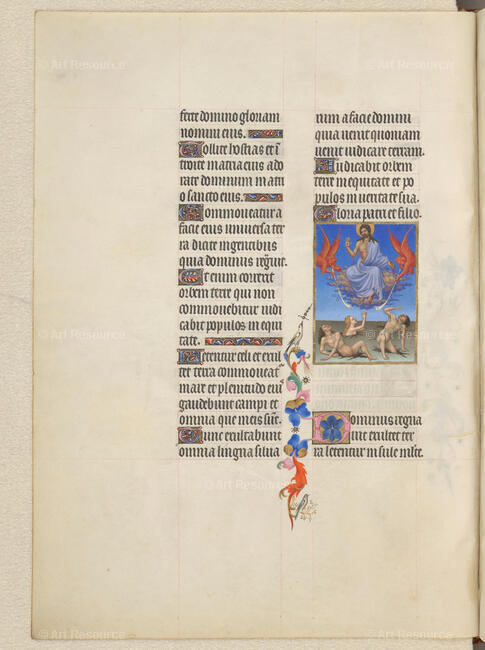 ferte domino gloriam
nomini eius.
Tollite hostias et i
troite in atria eius ado
rate dominum in atri
o sancto eius.
Commoveatur a
facie eius universa ter
ra dicite in gentibus
quia dominus regnavit.
Et enim correxit
orbem terre qui non
commovebitur iudi
cabit populos in equi
tate.
Letentur celi et exul
tet terra commoveat
mare et plenitudo eius
gaudebunt campi et
omnia que in eis sunt.
Tunc exultabunt
omnia lingna silva
rum a facie domini
quia venit quoniam
venit iudicare terram.
Iudicabit orbem
terre in equitate et po
pulos in veritate sua.
Gloria patri et filio.
Dominus regna
vit exultet ter
ra letentur insule multe.
© Art Resource
© Art Resource
© Art Resource
© Art Resource
© Art Resource
© Art Resource
© Art Resource